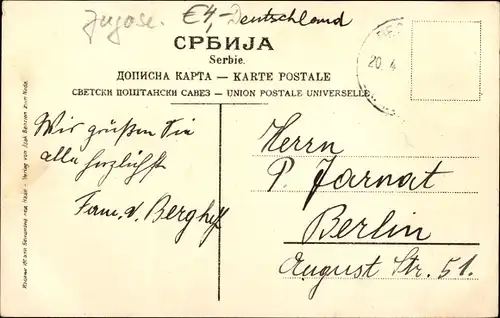 Jugosl. €4,- Deutschland
СРБИЈА
Serbie.
ДОПИСНА КАРТА — KARTE POSTALE
СВЕТСКИ ПОШТАНСКИ САВЕЗ — UNION POSTALE UNIVERSELLE
20 4
Wir grüßen Sie
alle herzlichst
Fam. v.
Herrn
P. Jarnat
Berlin
August Str. 51.